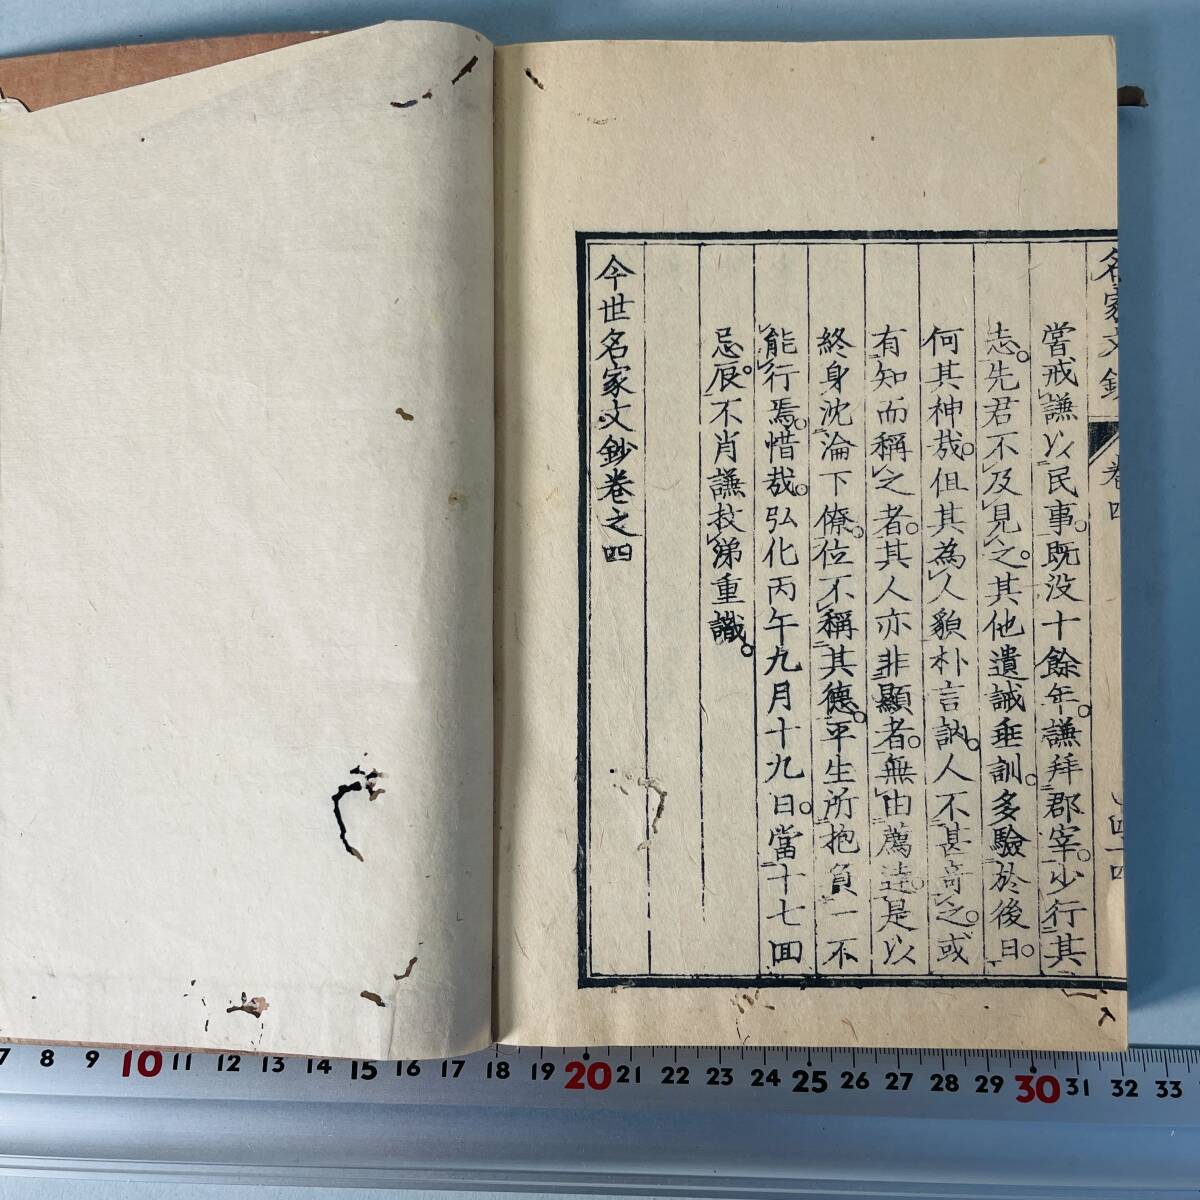 名家文鈔
卷四
嘗戒謙以民事。既没十餘年。謙拜郡宰。少行其
志。先君不及見之。其他遺誡垂訓。多驗於後日。
何其神哉。但其為人貌朴言訥。人不甚奇之。或
有知而稱之者。其人亦非顯者。無由薦達。是以
終身沈淪下僚。位不稱其德。平生所抱負一不
能行焉。惜哉。弘化丙午九月十九日。當十七回
忌辰。不肖謙抆涕重識。
今世名家文鈔卷之四
7 8 9 10 11 12 13 14 15 16 17 18 19 20 21 22 23 24 25 26 27 28 29 30 31 32 33